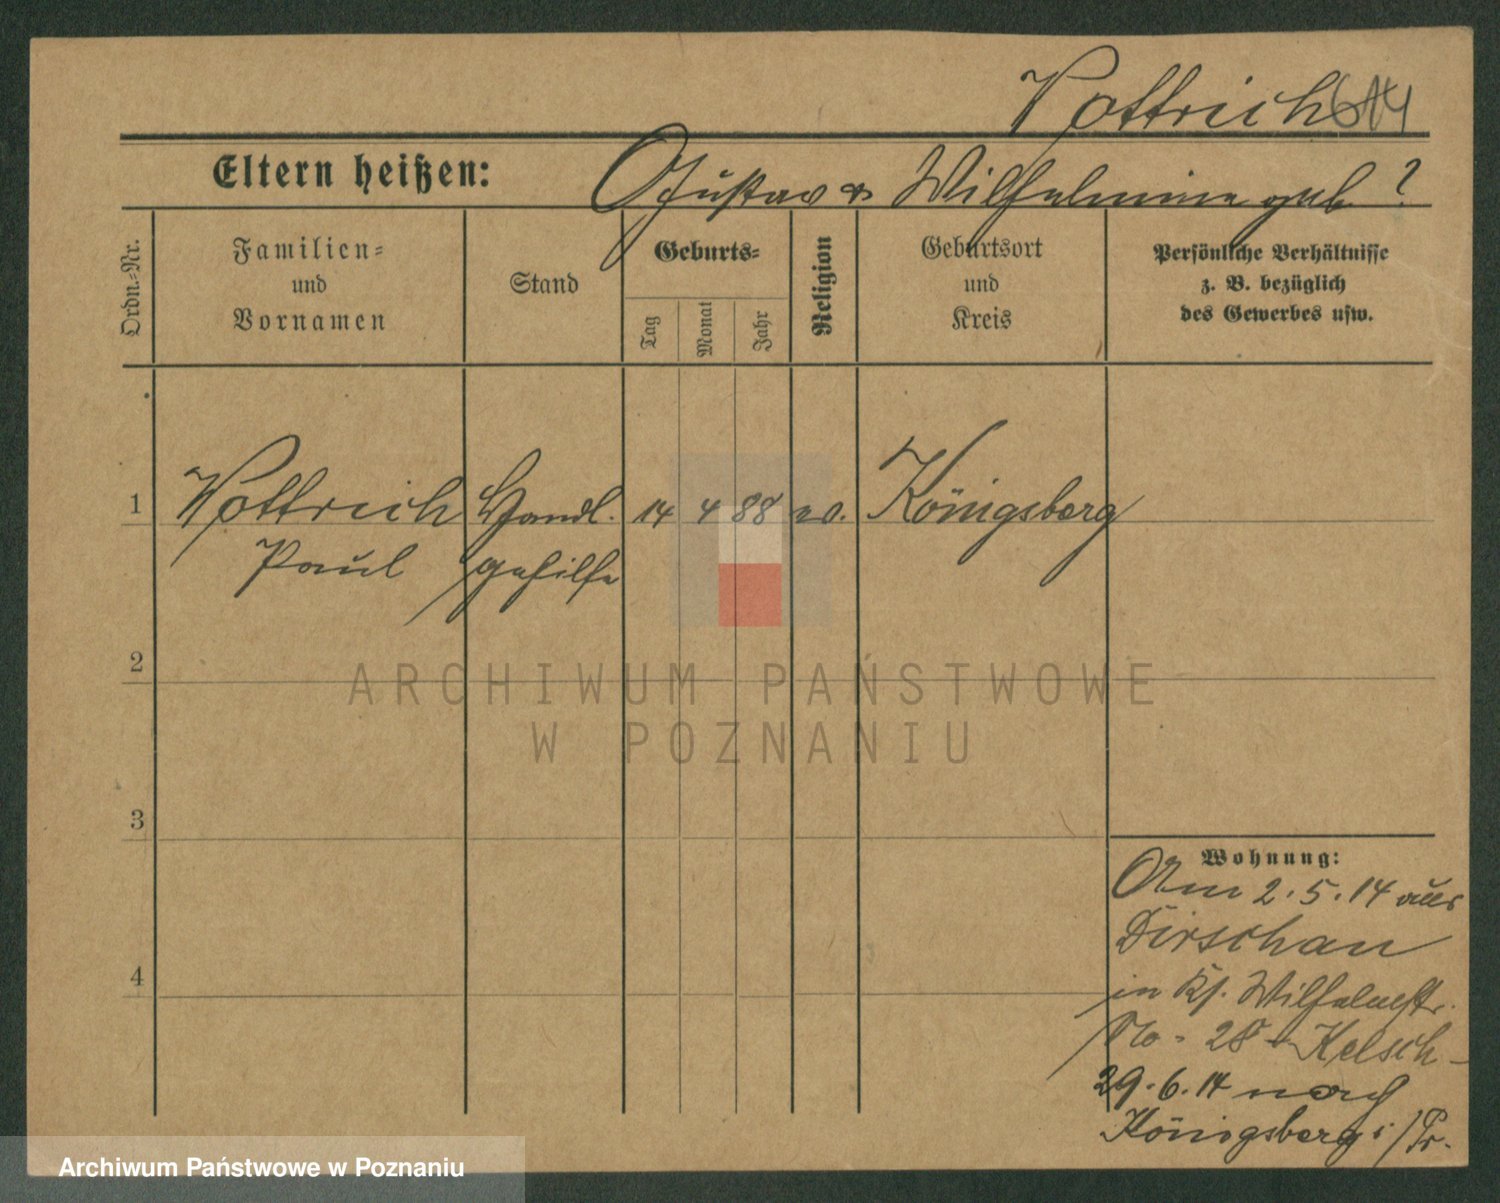 Pottrich 614
Eltern heißen: Gustav & Wilhelmine geb. ?
Ordn.-Nr.
Familien-
und
Vornamen
Stand
Geburts-
Tag
Monat
Jahr
Religion
Geburtsort
und
Kreis
Persönliche Verhältnisse
z. B. bezüglich
des Gewerbes usw.
1 Pottrich Handl. 14 4 88 ev. Königsberg
Paul gehilfe
2
3
4
Wohnung:
Am 2.5.14 aus
Dirschau
in Kf. Wilhelmstr.
No. 28 Kelsch
29.6.14 nach
Königsberg i/Pr.
ARCHIWUM PAŃSTWOWE
W POZNANIU
Archiwum Państwowe w Poznaniu